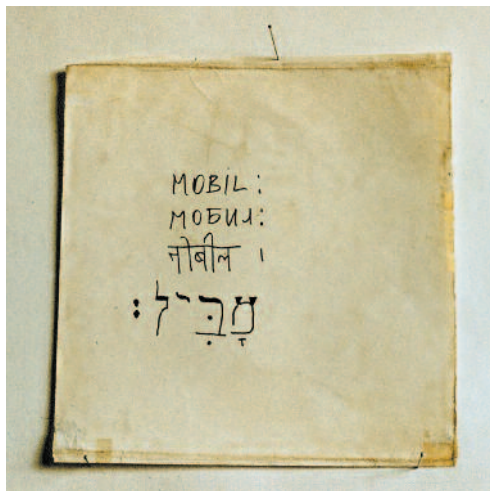 MOBIL:
МОБИЛ:
नोबील ।
מָבִּיל: